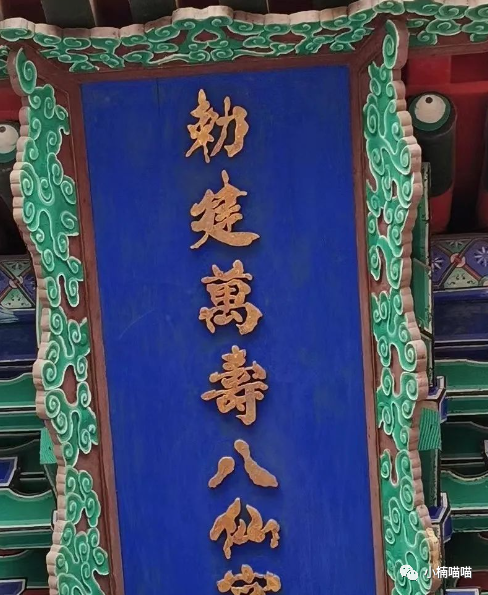 勅建萬壽八仙宮
小楠喵喵